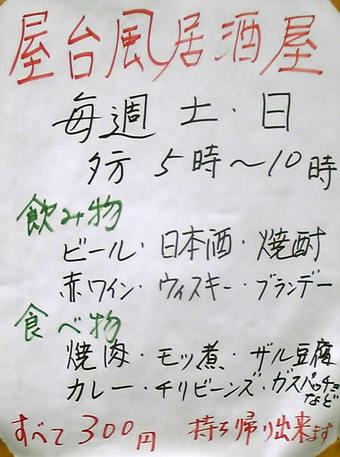 屋台風居酒屋
毎週 土・日
夕方 5時～10時
飲み物
ビール・日本酒・焼酎
赤ワイン・ウィスキー・ブランデー
食べ物
焼肉・モツ煮・ザル豆腐
カレー・チリビーンズ・ガスパッチョ
など
すべて300円 持ち帰り出来ます